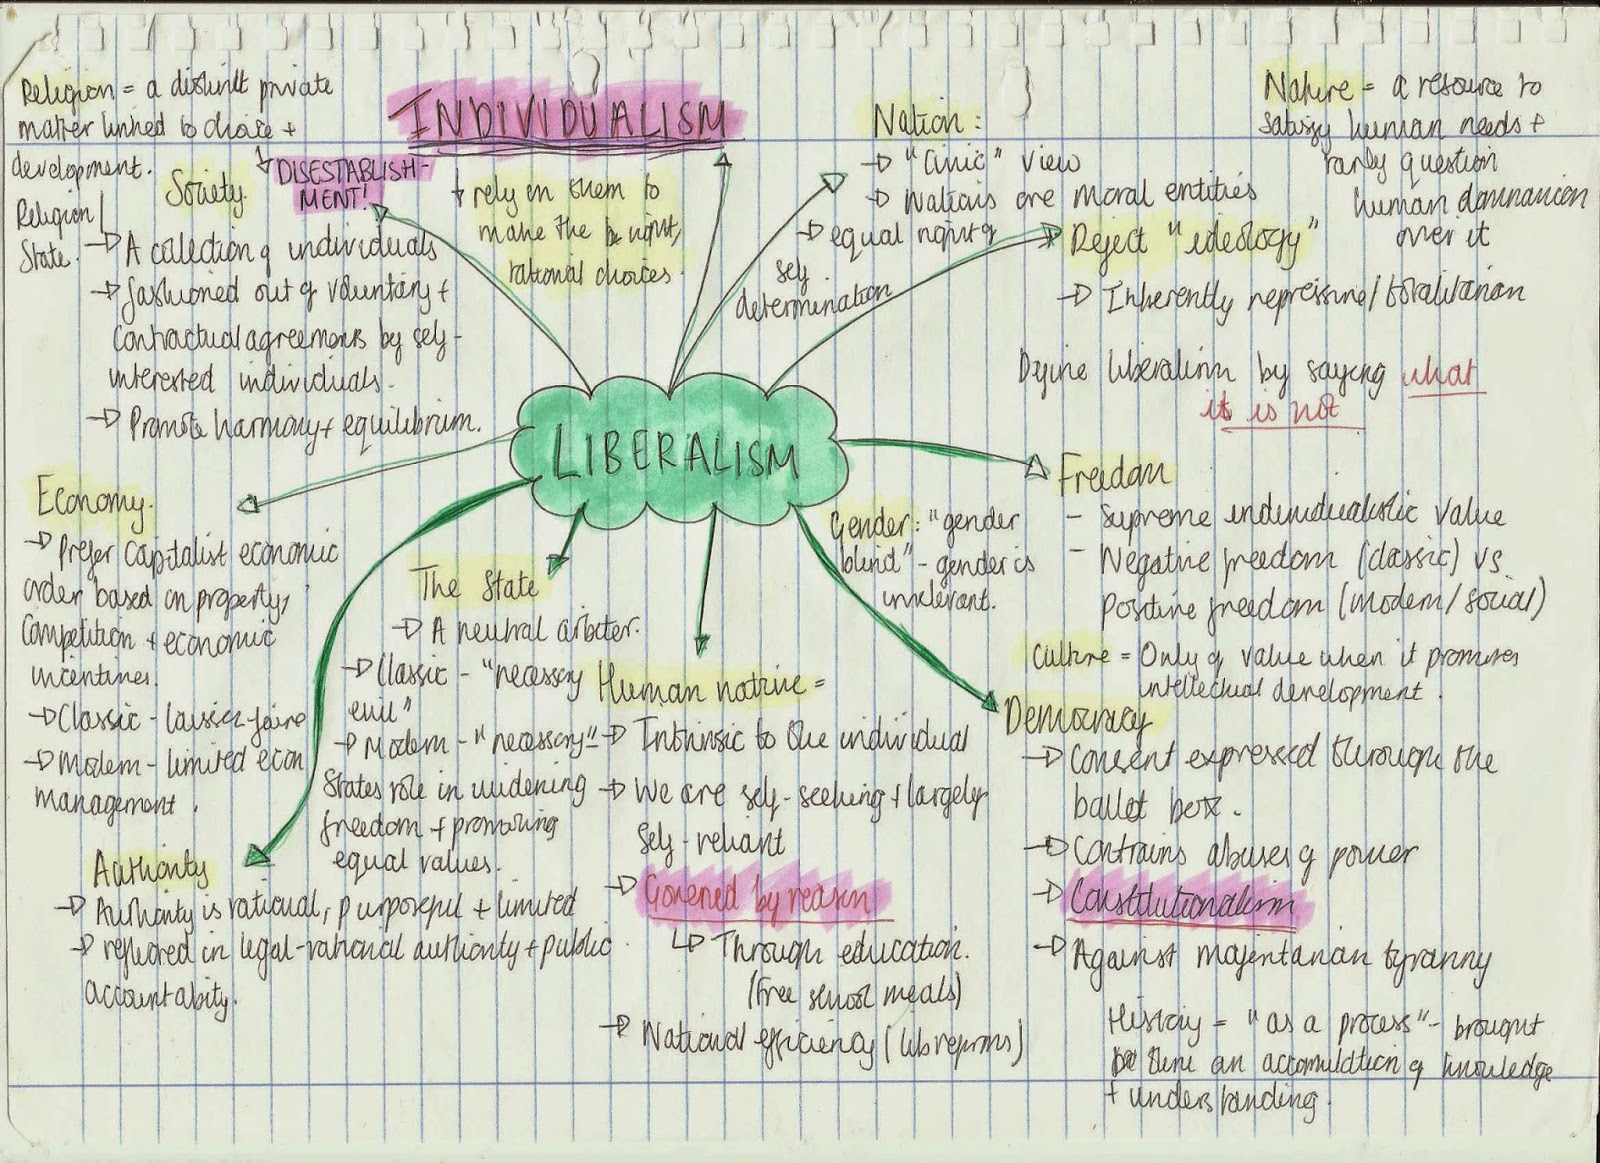 Religion = a distinct private
matter linked to choice +
development.
Religion/
State.
DISESTABLISH-
MENT!
INDIVIDUALISM
rely on them to
make the right,
rational choices.
Nation:
"Civic" view
Nations are moral entities
equal right of
self
determination
Nature = a resource to
satisfy human needs +
rarely question
human domnanion
over it
Society.
A collection of individuals
fashioned out of voluntary +
contractual agreements by self-
interested individuals.
Promote harmony + equilibrium.
Reject "ideology"
Inherently repressive/totalitarian
Define liberalism by saying what
it is not
LIBERALISM
Economy.
Prefer capitalist economic
order based on property,
competition + economic
incentives.
Classic - laissez-faire
Modern - limited econ
management.
The State
A neutral arbiter.
Classic - "necessary
evil"
Modern - "necessary"
States role in widening
freedom + promoting
equal values.
Gender: "gender
blind" - gender is
irrelevant.
Freedom
- Supreme individualistic value
- Negative freedom (classic) vs
positive freedom (modern/social)
Culture = Only of value when it promotes
intellectual development.
Human nature =
Intrinsic to the individual
We are self-seeking + largely
self-reliant
Governed by reason
Through education.
(free school meals)
National efficiency (lib reforms)
Democracy
Consent expressed through the
ballet box.
Contrains abuses of power
Constitutionalism
Against majoritarian tyranny
Authority
Authority is rational, purposeful + limited
reflected in legal-rational authority + public
accountability.
History = "as a process" - brought
there an accumulation of knowledge
+ understanding.